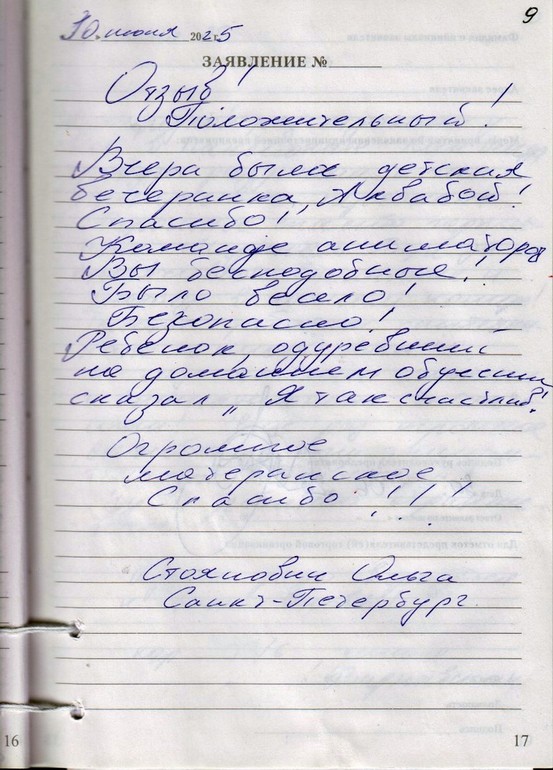 9
10 июня 2025 г.
ЗАЯВЛЕНИЕ №
Отзыв!
Положительный!
Вчера была детская
вечеринка, Аквабой!
Спасибо!
Команде аниматоров
Вы бесподобные!
Было весело!
Безопасно!
Ребёнок, одуревший
на домашнем обучении
сказал „Я так счастлив"!
Огромное
материнское
Спасибо!!!
Стоянович Ольга
Санкт-Петербург.
16
17